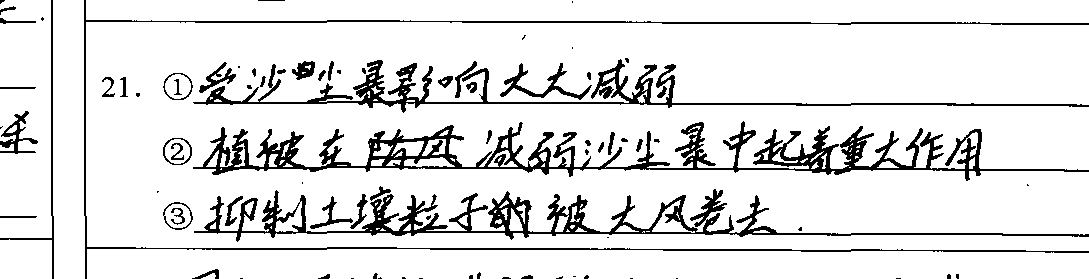 21. ①受沙尘暴影响大大减弱
②植被在减弱沙尘暴中起着重大作用
③抑制土壤粒子被大风卷去.